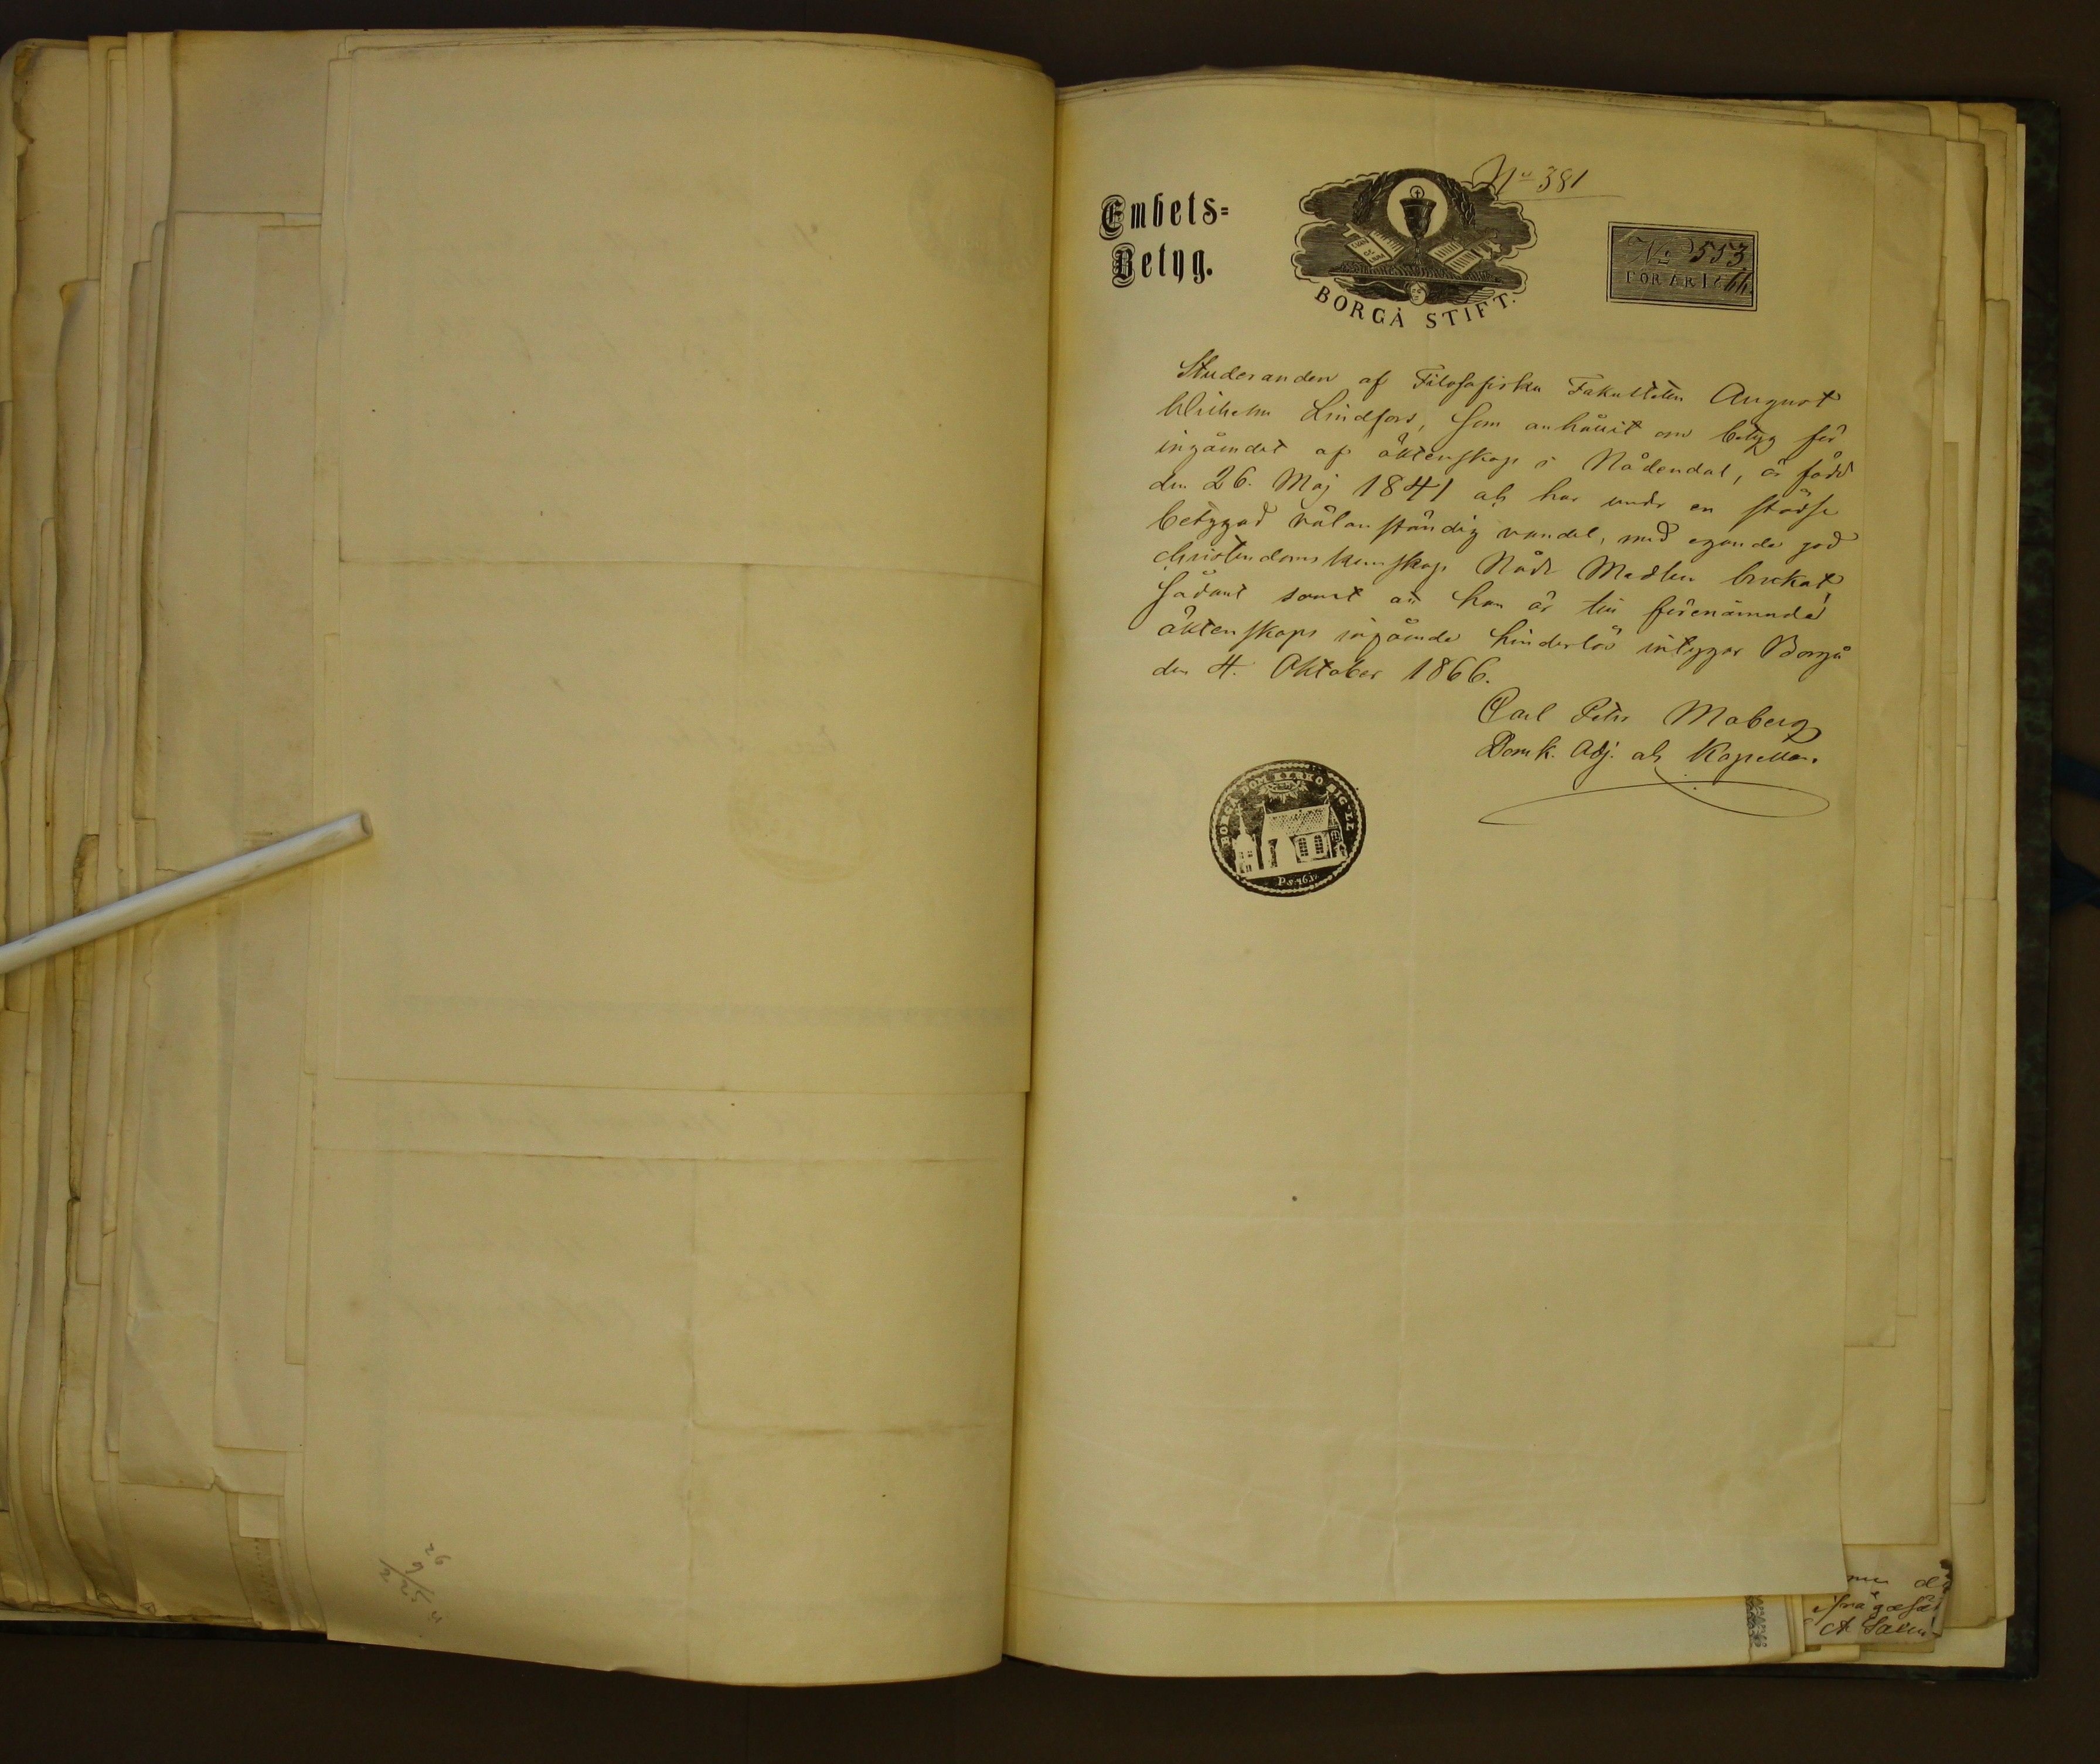 No 381
Embets=
Betyg.
BORGÅ STIFT.
No 553
FÖR ÅR 1866.
Studeranden af Filosofiska Fakulteten August
Wilhelm Lindfors, som anhållit om betyg för
ingåendet af äktenskap i Nådendal, är född
den 26. Maj 1841 och har under en städse
betygad välanständig vandel, med egande god
christendomskunskap Nåde Medlen brukat,
sådant samt att han är till förenämnda
äktenskaps ingående hinderlös intygar Borgå
den 4. Oktober 1866.
Carl Petter Moberg
Domk. Adj. och Kapellan.
BORGÅ DOM KYRKO SIGILL